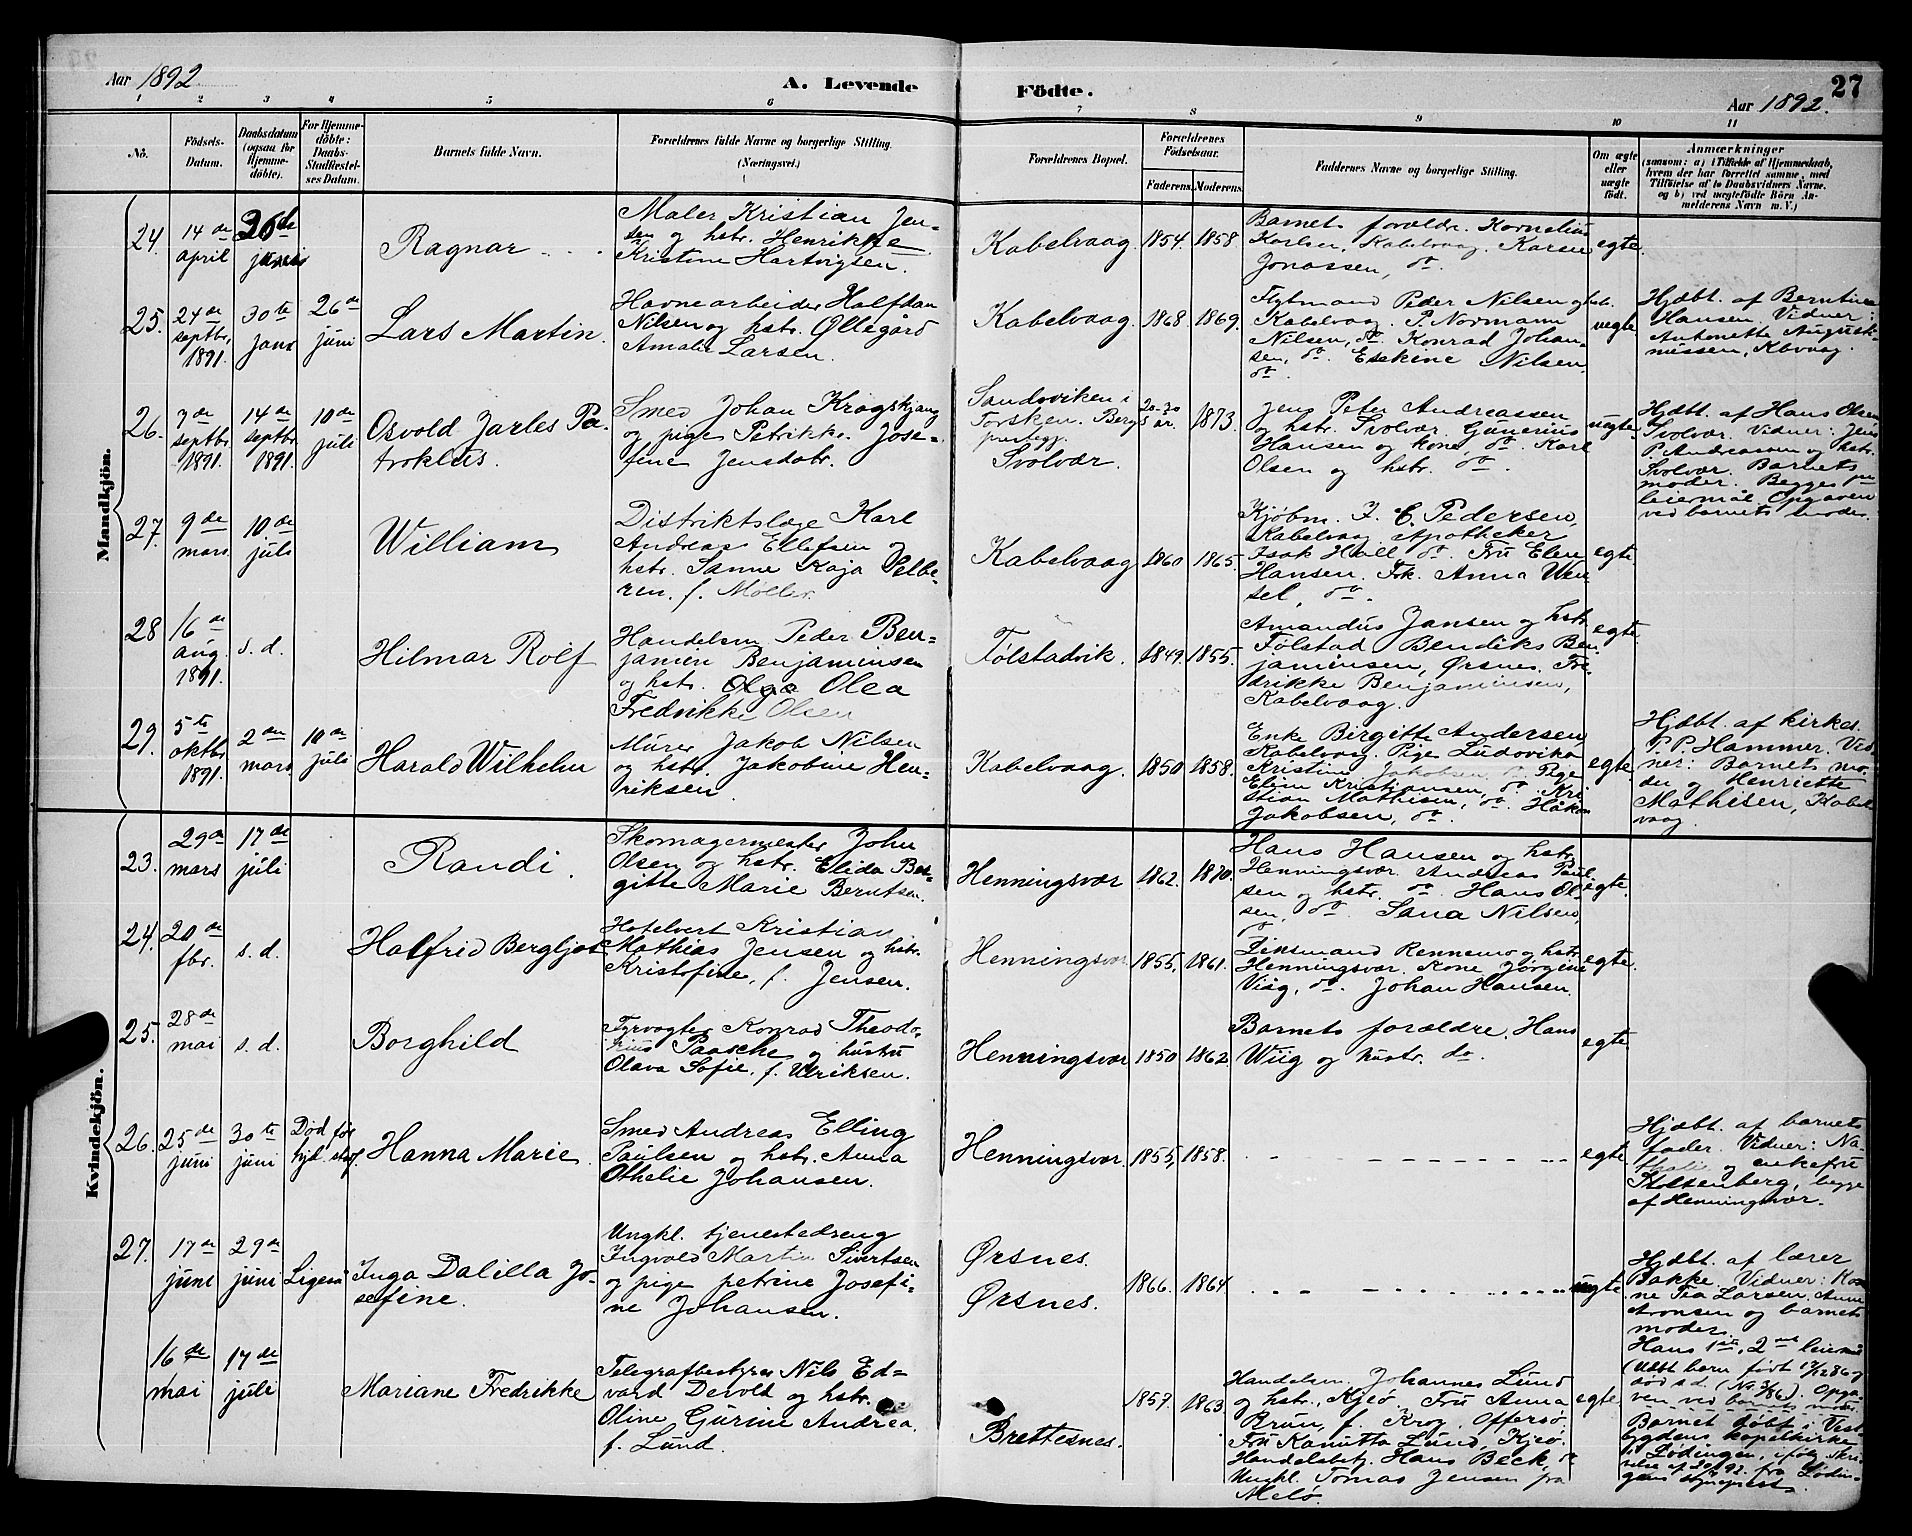 Aar 1892
A. Levende
Födte.
27
Aar 1892.
1 2 3 4 5 6 7 8 9 10 11
No.
Födsels-
Datum.
Daabsdatum
(ogsaa for
Hjemme-
döbte).
For Hjemme-
döbte:
Daabs-
Stadfæstel-
ses Datum.
Barnets fulde Navn.
Forældrenes fulde Navne og borgerlige Stilling.
(Næringsvei.)
Forældrenes Bopæl.
Forældrenes
Födselsaar.
Faderens.
Moderens.
Faddernes Navne og borgerlige Stilling.
Om ægte
eller
uægte
født.
Anmærkninger
(saasom: a) i Tilfælde af Hjemmedaab,
hvem der har forrettet samme, med
Tilföielse af to Daabsvidners Navne.
og b) ved uægtefödte Börn An-
melderens Navn m. V.)
Mandkjön.
24.
14de
april
26de
juni
Ragnar
Maler Kristian Jen-
sen og hstr. Henrikke
Kristine Hartvigsen.
Kabelvaag.
1854.
1858
Barnets foreldr. Kornelius
Karlsen, Kabelvaag. Karen
Jonassen, do.
egte.
25.
24de
septbr.
1891.
30te
jan
26de
juni
Lars Martin.
Havnearbeider Halfdan
Nilsen og hstr. Øllegård
Amalie Larsen.
Kabelvaag.
1868
1869.
Flytmand Peder Nilsen og
Kabelvaag. P. Normann
Nilsen, do. Konrad Johan-
sen, do. Eskine Nilsen
do
uegte
Hjdbt. af Berntine
Hansen. Vidner:
Antonette August-
nussen, Kbvaag.
26.
7de
septbr
1891.
14de
septbr
1891.
10de
juli
Osvold Jarles Pa-
troklus.
Smed Johan Kragskjang
og pige Petrikke Jose-
fine Jensdatr.
Sandviken i
Torsken. Bergs
prestegj.
Svolvær.
20-30
år.
1873.
Jens Peter Andreassen
og hstr. Svolvær. Gunerius
Hansen og kone, do. Karl
Olsen og hstr. do.
uegte
Hjdbt. af Hans Olsen
Svolvær. Vidner: Jens
P. Andreassen og hstr.
Svolvær. Barnets
moder. Begges
leiermål. Opgaven
ved barnets moder.
27.
9de
mars
10de
juli
William
Distriktslæge Karl
Andreas Ellefsen og
hstr. Sanne Kaja Velbe-
ren. f. Møller.
Kabelvaag
1860
1865.
Kjøbm. J. C. Pedersen,
Kabelvaag. Apotheker
Isak Hall do. Fru Elen
Hansen. Frk. Anna Wen-
sel, do.
egte.
28
16de
aug.
1891.
s. d.
Hilmar Rolf
Handelsm Peder Ben-
jamin Benjaminsen
og hstr. Olga Olea
Fredrikke Olsen
Tølstadvik.
1849.
1855.
Amandus Jansen og hstr.
Tølstad Bendiks Ben-
jaminsen, Ørsnes. Fre-
drikke Benjaminsen,
Kabelvaag.
egte
29.
5te
oktbr
1891.
2den
mars
10de
juli
Harald Wilhelm
Murer Jakob Nilsen
og hstr. Jakobine Hen-
riksen.
Kabelvaag.
1850
1858.
Enke Birgitte Andersen
Kabelvaag. Pige Ludovika
Kristine Jakobsen, do. Pige
Elen Kristiansen, do. Kri
stian Mathisen, do. Håkon
Jakobsen, do.
egte
Hjdbt. af kirkes.
P. P. Hammer. Vid-
ner: Barnets mo-
der og Henriette
Mathisen, Kabel-
vaag.
Kvindekjön.
23.
29de
mars
17de
juli
Randi.
Skomagermester John
Olsen og hstr. Elida Ber-
gitte Marie Berntsen.
Henningsvær
1862.
1870.
Hans Hansen og hstr.
Henningsvær. Andreas Paul-
sen og hstr. do. Hans Ol-
sen, do. Sana Nilsen,
do
egte.
24.
20de
fbr.
s. d.
Halfrid Bergljot
Hotelvert Kristian
Mathias Jensen og hstr.
Kristofine, f. Jensen.
Henningsvær
1855.
1861.
Diksmand Rennemo og hstr.
Henningsvær. Kone Jørgine
Viig, do. Johan Hansen.
egte.
25.
28de
mai
s. d.
Borghild
Fyrvogter Konrad Theodo-
rius Paasche og hustru
Olava Sofie, f. Ulriksen.
Henningsvær
1850
1862.
Barnets forældre. Hans
Wiig og hustr. do.
egte.
26.
25de
juni
30te
juni
Død før
hjd. stadf.
Hanna Marie.
Smed Andreas Elling
Paulsen og hstr. Anna
Othelie Johansen.
Henningsvær.
1855,
1858.
egte.
Hjdbt. af barnets
fader. Vidner: Na-
thalie og enkefru
Stoltenberg, begge
af Henningsvær.
27.
17de
juni
29de
juni
Ligeså
Inga Dalilla Jo-
sefine.
Ungkl. tjenestedreng
Ingvald Martin Sivertsen
og pige petrine Josefi-
ne Johansen.
Ørsnes.
Ørsnes.
1866.
1864
uegte.
Hjdbt. af lærer
Bakke. Vidner: Ko-
ne Pia Larsen, Anne
Aronsen og barnets
moder.
Hans 1ste, 2ne leiermål
(Udbt barn født 17/12 86 og
død s.d. (No. 3/86). Opga-
ven ved barnets moder.
16de
mai
17de
juli
Mariane Fredrikke
Telegrafbestyrer Nils Ed-
vard Dervold og hstr.
Oline Gurine Andrea,
f. Lund.
Brettesnes.
1857.
1863.
Handelsm. Johannes Lund
og hstr., Kjeø. Fru Anna
Brun, f. Krog, Offersø.
Fru Kanutta Lund, Kjeø.
Handelsbetj. Hans Beck, do
Ungkl. Tomas Jensen fra
Melø.
egte
Barnet døbt i Vest-
bygdens kapelkirke
i Lødingen, ifølg. skri-
velse af 20/7 92. fra Lødin-
gens sogneprest.